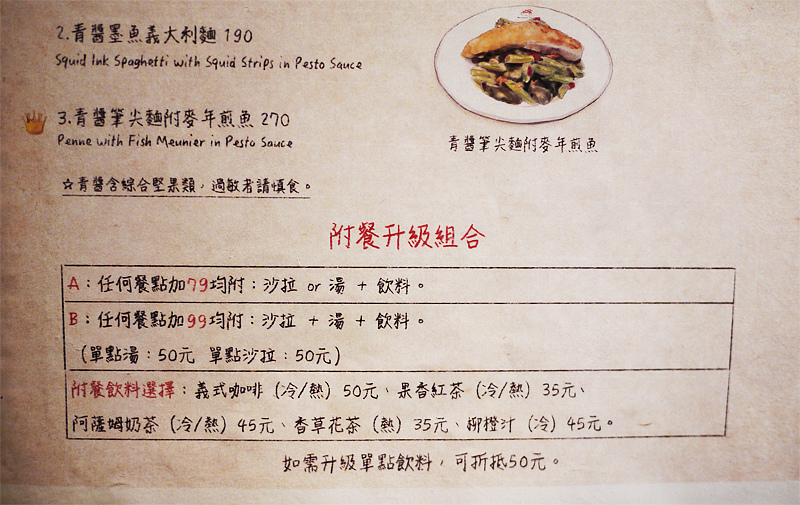 2.青醬墨魚義大利麵 190
Squid Ink Spaghetti with Squid Strips in Pesto Sauce
3.青醬筆尖麵附麥年煎魚 270
Penne with Fish Meunier in Pesto Sauce
青醬筆尖麵附麥年煎魚
☆青醬含綜合堅果類，過敏者請慎食。
附餐升級組合
A：任何餐點加79均附：沙拉 or 湯 + 飲料。
B：任何餐點加99均附：沙拉 + 湯 + 飲料。
(單點湯：50元 單點沙拉：50元)
附餐飲料選擇：義式咖啡 (冷/熱) 50元、果香紅茶 (冷/熱) 35元、
阿薩姆奶茶 (冷/熱) 45元、香草花茶 (熱) 35元、柳橙汁 (冷) 45元。
如需升級單點飲料，可折抵50元。